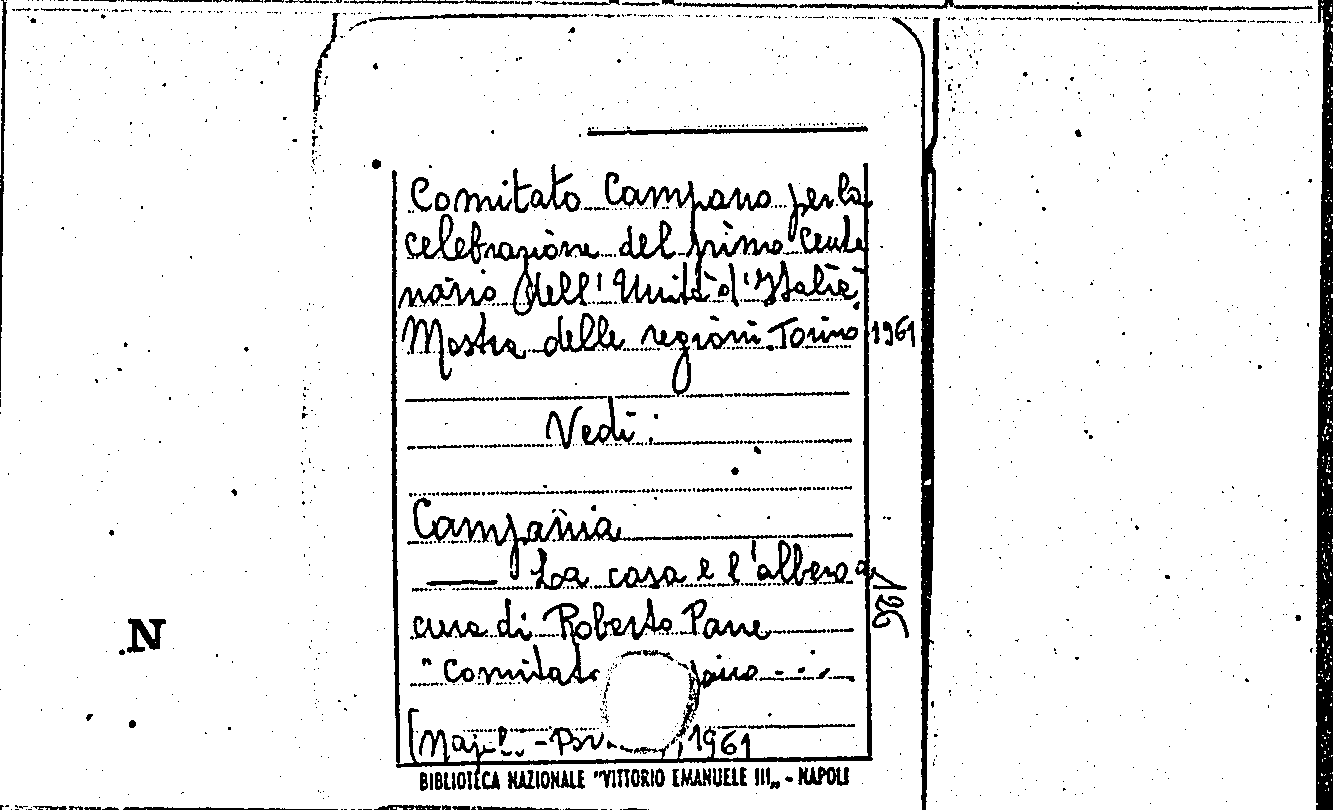 Comitato Campano per la
celebrazione del primo cente
nario dell'Unità d'Italia
Mostra delle regioni. Torino 1961
Vedi:
Campania
— La casa e l'albero a
cura di Roberto Pane
"Comitato ...
1961
126
N
BIBLIOTECA NAZIONALE "VITTORIO EMANUELE III„ - NAPOLI